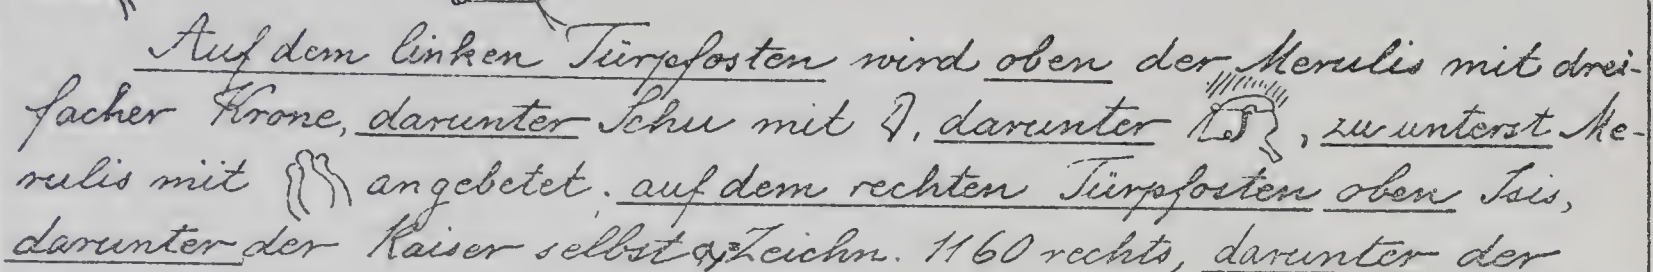 Auf dem linken Türpfosten wird oben der Merulis mit drei-
facher Krone, darunter Schu mit , darunter , zu unterst Me-
rulis mit angebetet. auf dem rechten Türpfosten oben Isis,
darunter der Kaiser selbst Zeichn. 1160 rechts, darunter der